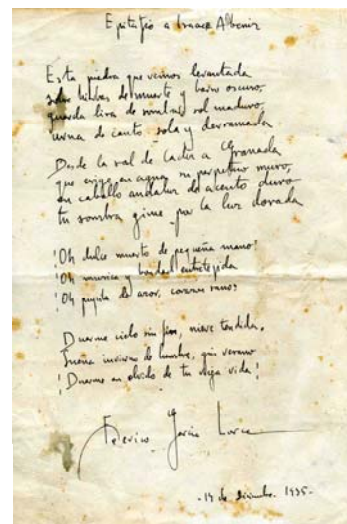 Epitafio a Isaac Albéniz
Esta piedra que vemos levantada
sobre hierbas de muerte y barro oscuro,
guarda lira de sombra, sol maduro,
urna de canto sola y derramada
Desde la sal de Cádiz a Granada
que erige en agua su perpetuo muro,
en caballo andaluz de acento duro
tu sombra gime por la luz dorada
¡Oh dulce muerto de pequeña mano!
¡Oh música y bondad entretejida
¡Oh pupila de azor, corazón sano!
Duerme cielo sin fin, nieve tendida.
Sueña invierno de lumbre, gris verano
¡Duerme en olvido de tu vieja vida!
Federico García Lorca
-14 de Diciembre 1935-